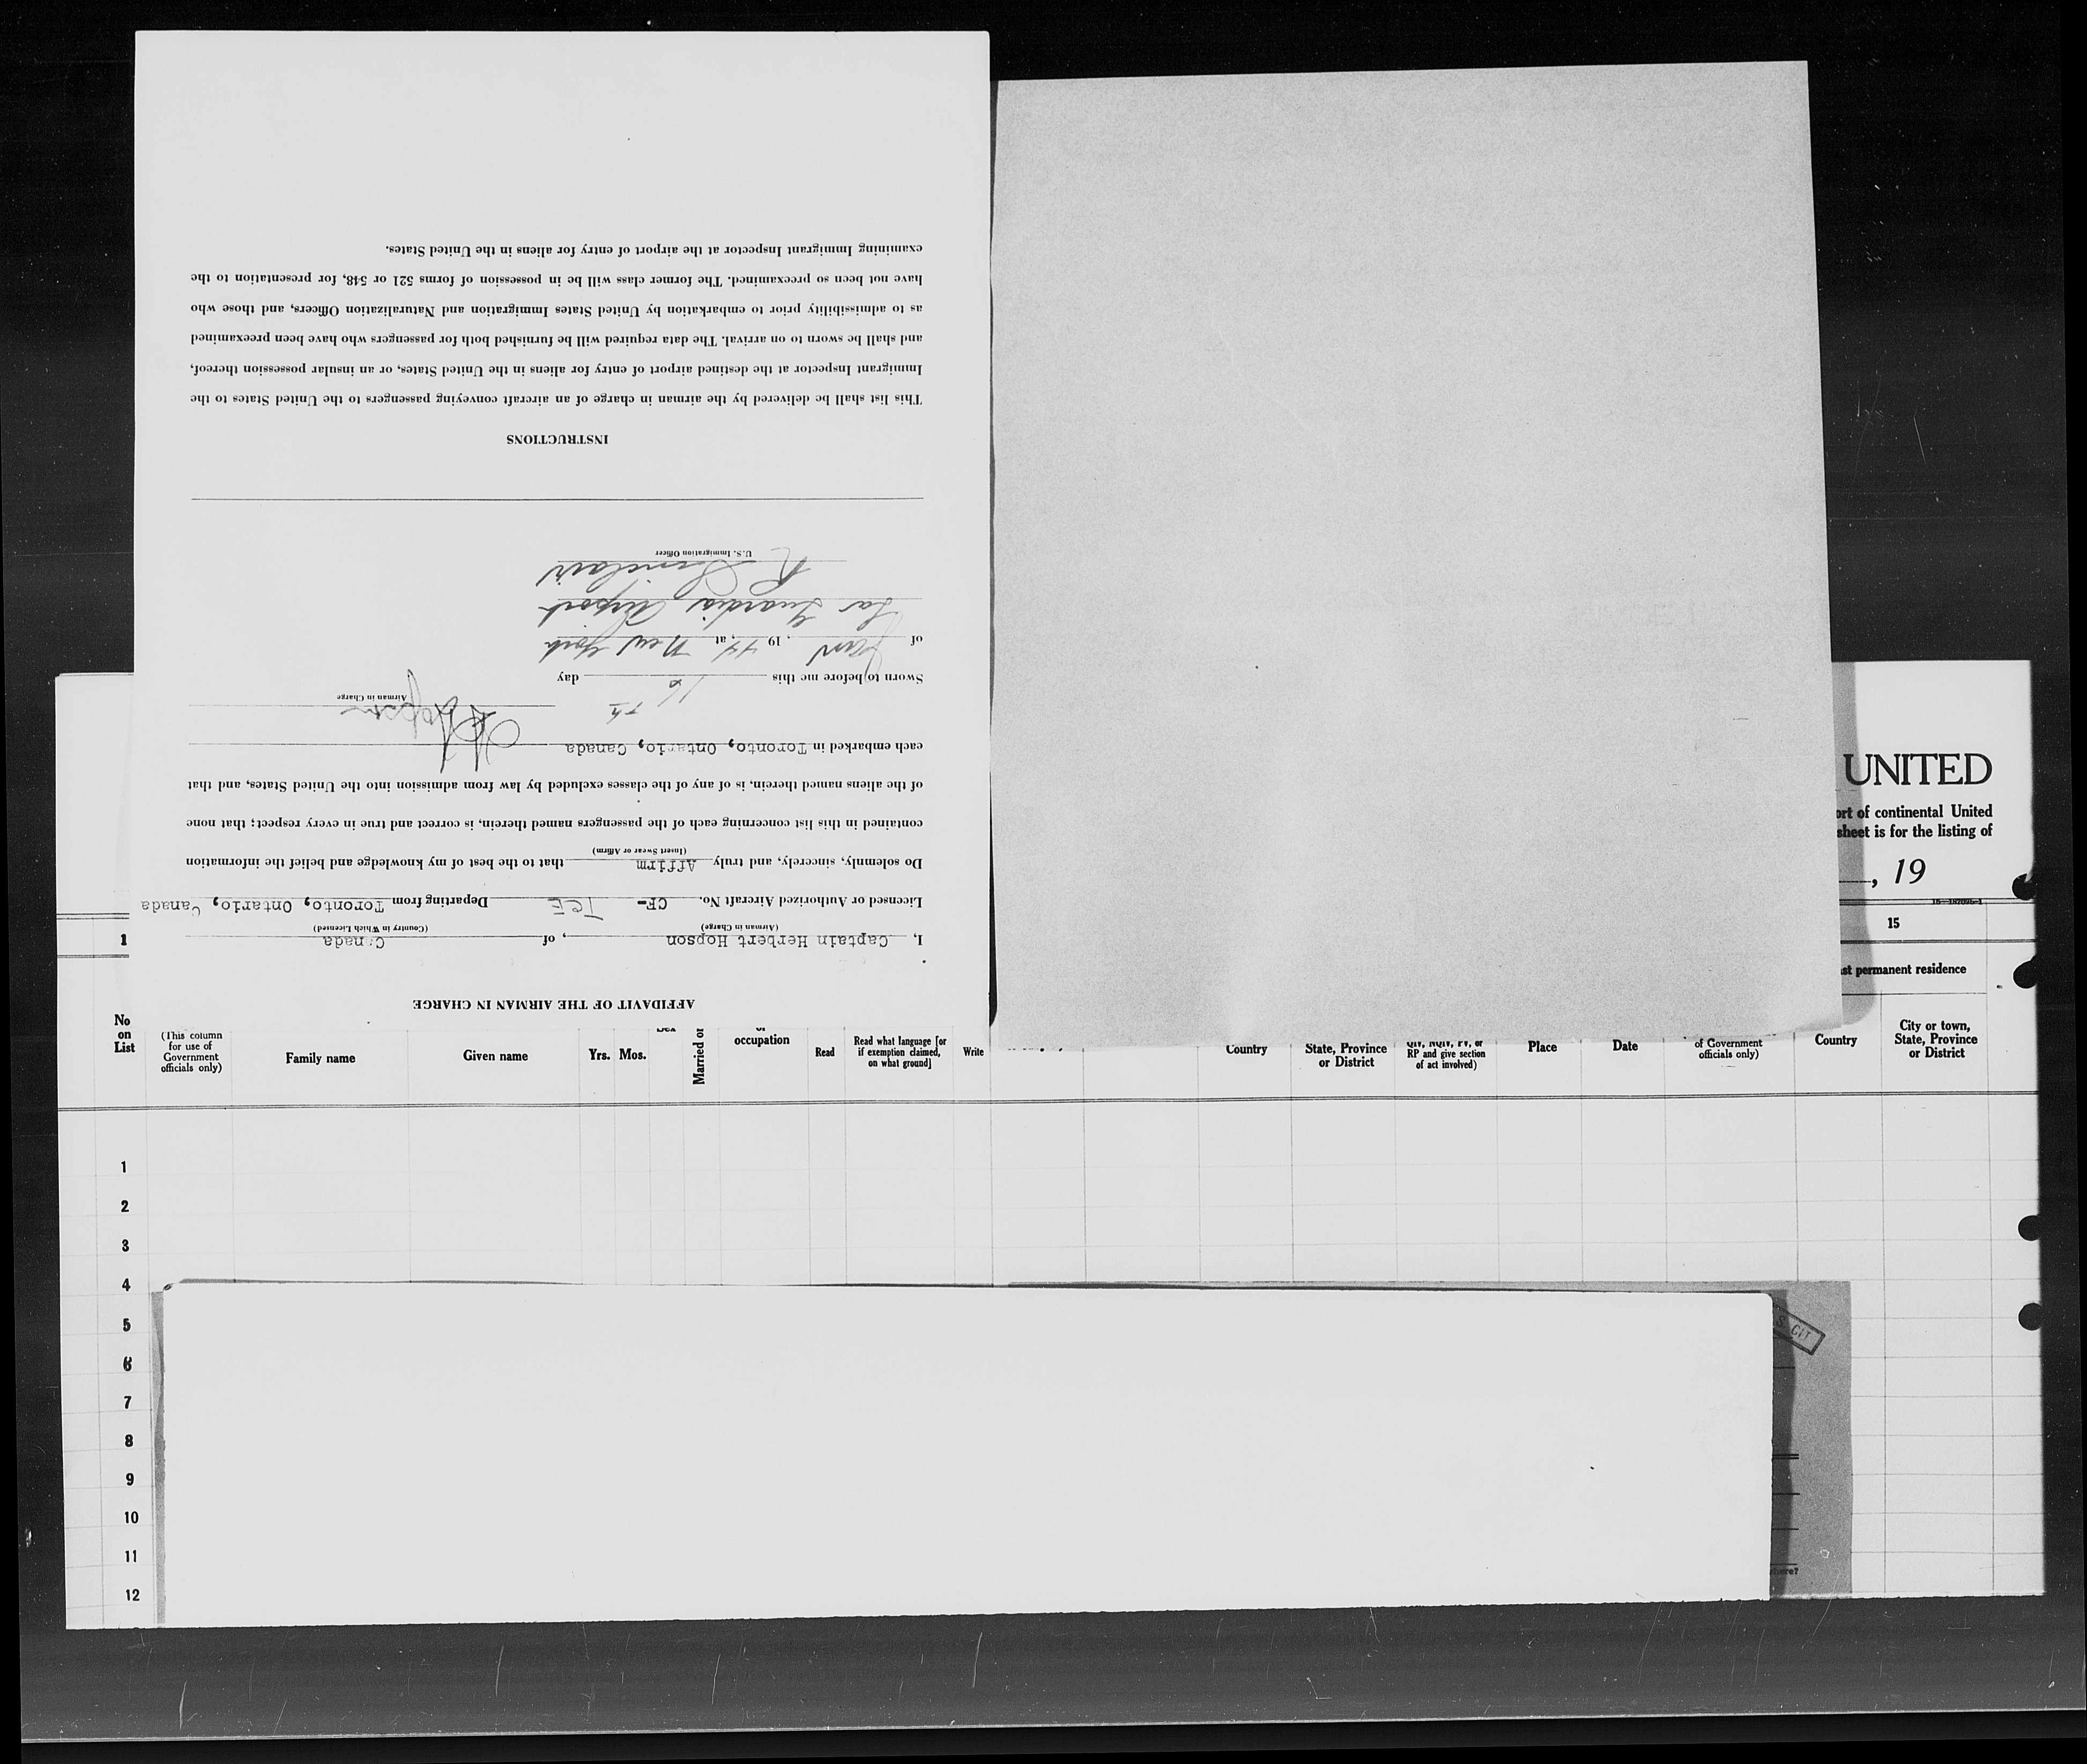 AFFIDAVIT OF THE AIRMAN IN CHARGE
I, Captain Herbert Hopson, of Canada
(Airman in Charge) (Country in Which Licensed)
Licensed or Authorized Aircraft No. CF- TCE Departing from Toronto, Ontario, Canada
Do solemnly, sincerely, and truly Affirm that to the best of my knowledge and belief the information
(Insert Swear or Affirm)
contained in this list concerning each of the passengers named therein, is correct and true in every respect; that none
of the aliens named therein, is of any of the classes excluded by law from admission into the United States, and that
each embarked in Toronto, Ontario, Canada
H Hopson
Airman in Charge
Sworn to before me this 16th day
of Jan, 1944, at New York
La Guardia Airport
R Sinclair
U.S. Immigration Officer
INSTRUCTIONS
This list shall be delivered by the airman in charge of an aircraft conveying passengers to the United States to the
Immigrant Inspector at the destined airport of entry for aliens in the United States, or an insular possession thereof,
and shall be sworn to on arrival. The data required will be furnished both for passengers who have been preexamined
as to admissibility prior to embarkation by United States Immigration and Naturalization Officers, and those who
have not been so preexamined. The former class will be in possession of forms 521 or 548, for presentation to the
examining Immigrant Inspector at the airport of entry for aliens in the United States.
UNITED
ort of continental United
sheet is for the listing of
, 19
1 15
st permanent residence
No on List
(This column for use of Government officials only)
Family name
Given name
Yrs. Mos.
Married or
occupation
Read
Read what language [or if exemption claimed, on what ground]
Write
Country
State, Province or District
QIV, NQIV, PV, or RP and give section of act involved)
Place
Date
of Government officials only)
Country
City or town, State, Province or District
1
2
3
4
5
6
7
8
9
10
11
12
S. CIT
here?